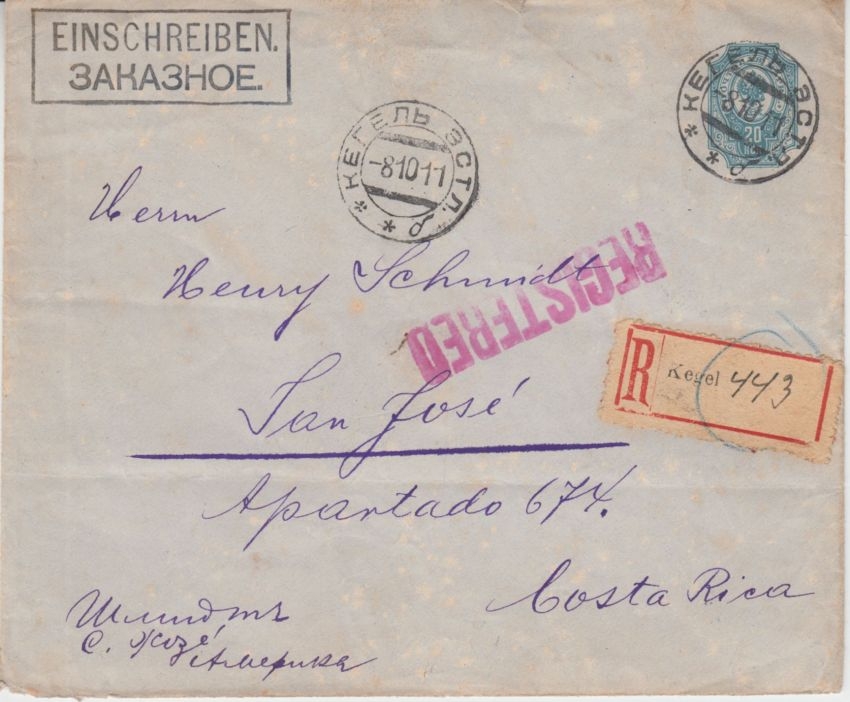 EINSCHREIBEN.
ЗАКАЗНОЕ.
КЕГЕЛЬ ЭСТЛ. * *
-8.10.11
КЕГЕЛЬ ЭСТЛ. * *
810 1
20
Herrn
Henry Schmidt
REGISTERED
R Kegel 443
San José
Apartado 674.
Costa Rica
Шмидтъ
С. Хозé
Америка